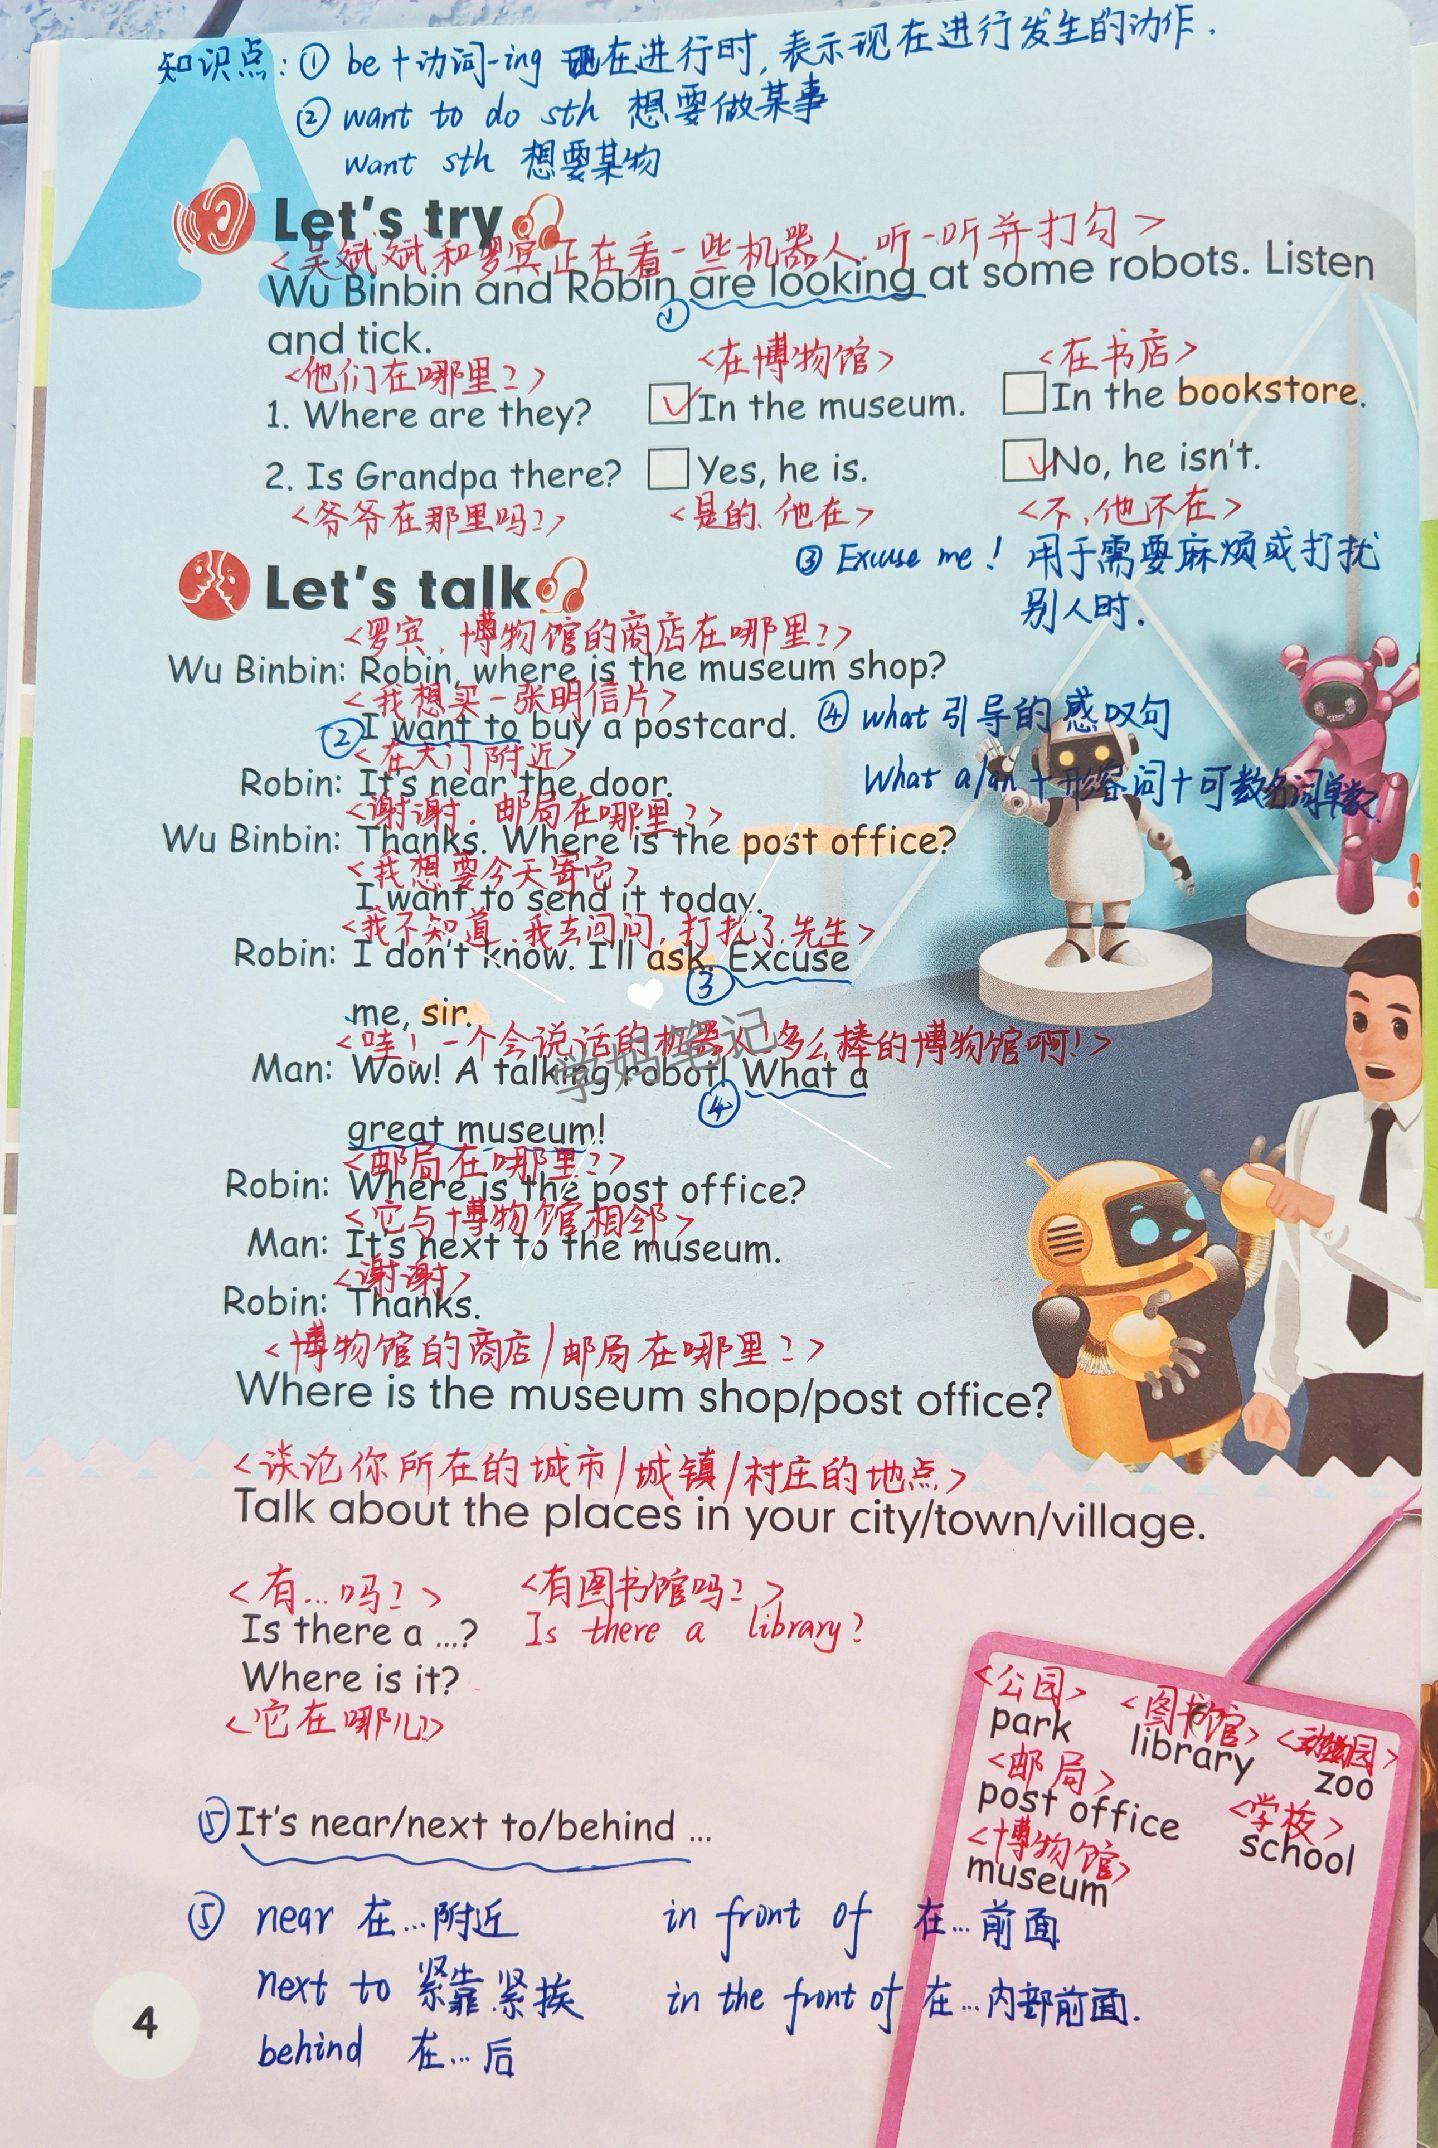 知识点: ① be+动词-ing 现在进行时, 表示现在进行发生的动作.
② want to do sth 想要做某事
want sth 想要某物
A
Let's try
<吴斌斌和罗宾正在看一些机器人.听一听并打勾>
Wu Binbin and Robin are looking at some robots. Listen
①
and tick.
<他们在哪里?> <在博物馆> <在书店>
1. Where are they? In the museum. In the bookstore.
2. Is Grandpa there? Yes, he is. No, he isn't.
<爷爷在那里吗?> <是的、他在> <不、他不在>
③ Excuse me! 用于需要麻烦或打扰
别人时.
Let's talk
<罗宾, 博物馆的商店在哪里?>
Wu Binbin: Robin, where is the museum shop?
<我想买一张明信片>
② I want to buy a postcard. ④ what 引导的感叹句
<在大门附近>
Robin: It's near the door. What a/an+形容词+可数名词单数.
<谢谢. 邮局在哪里?>
Wu Binbin: Thanks. Where is the post office?
<我想要今天寄它>
I want to send it today.
<我不知道、我去问问, 打扰了,先生>
Robin: I don't know. I'll ask. Excuse
③
me, sir.
<哇! 一个会说话的机器人!多么棒的博物馆啊!>
学妈笔记
Man: Wow! A talking robot! What a
④
great museum!
<邮局在哪里?>
Robin: Where is the post office?
<它与博物馆相邻>
Man: It's next to the museum.
<谢谢>
Robin: Thanks.
<博物馆的商店/邮局在哪里?>
Where is the museum shop/post office?
<谈论你所在的城市/城镇/村庄的地点>
Talk about the places in your city/town/village.
<有...吗?> <有图书馆吗?>
Is there a ...? Is there a library?
Where is it?
<它在哪儿>
<公园> <图书馆> <动物园>
park library zoo
<邮局> <学校>
post office school
<博物馆>
museum
⑤ It's near/next to/behind ...
⑤ near 在...附近 in front of 在...前面
next to 紧靠.紧挨 in the front of 在...内部前面.
behind 在...后
4